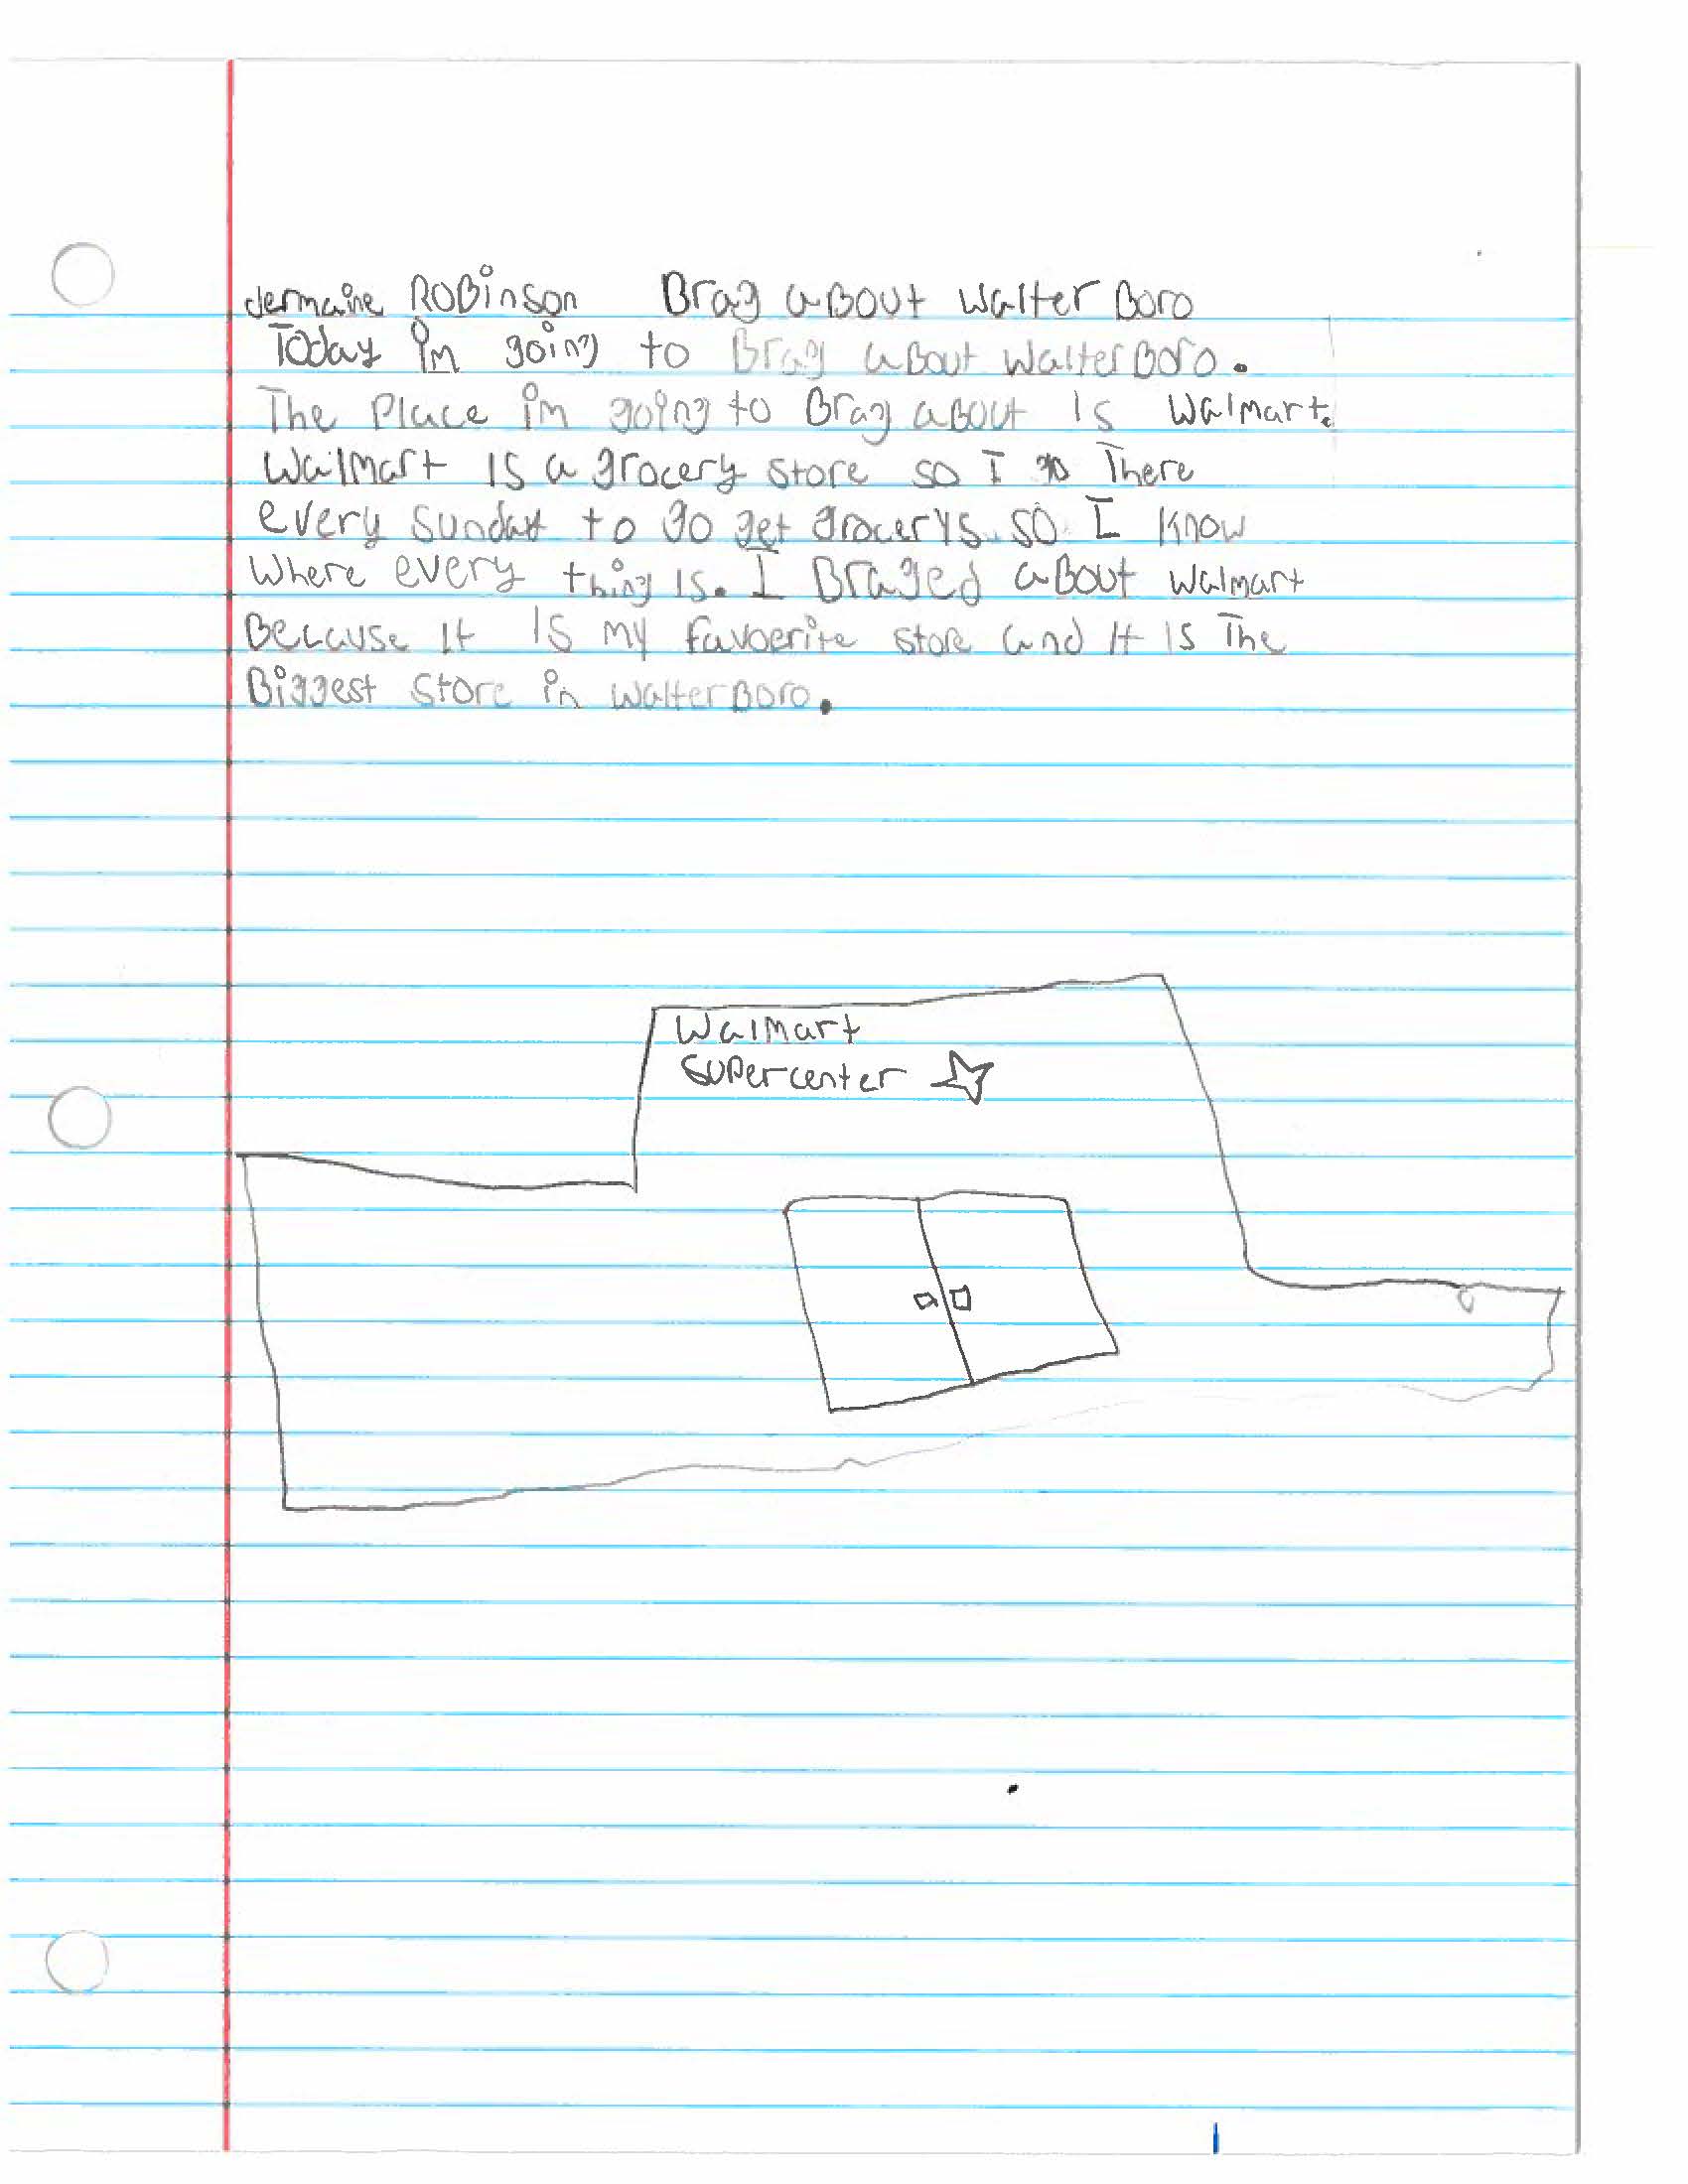 Jermaine ROBinson Brag aBout Walter Boro
Today im going to Brag aBout Walter Boro.
The Place im going to Brag aBout is Walmart.
Walmart is a grocery store so I go There
every Sunday to go get grocerys. so I know
Where every thing is. I Braged aBout Walmart
Because it is my favoerite store and it is The
Biggest store in Walter Boro.
Walmart
Supercenter